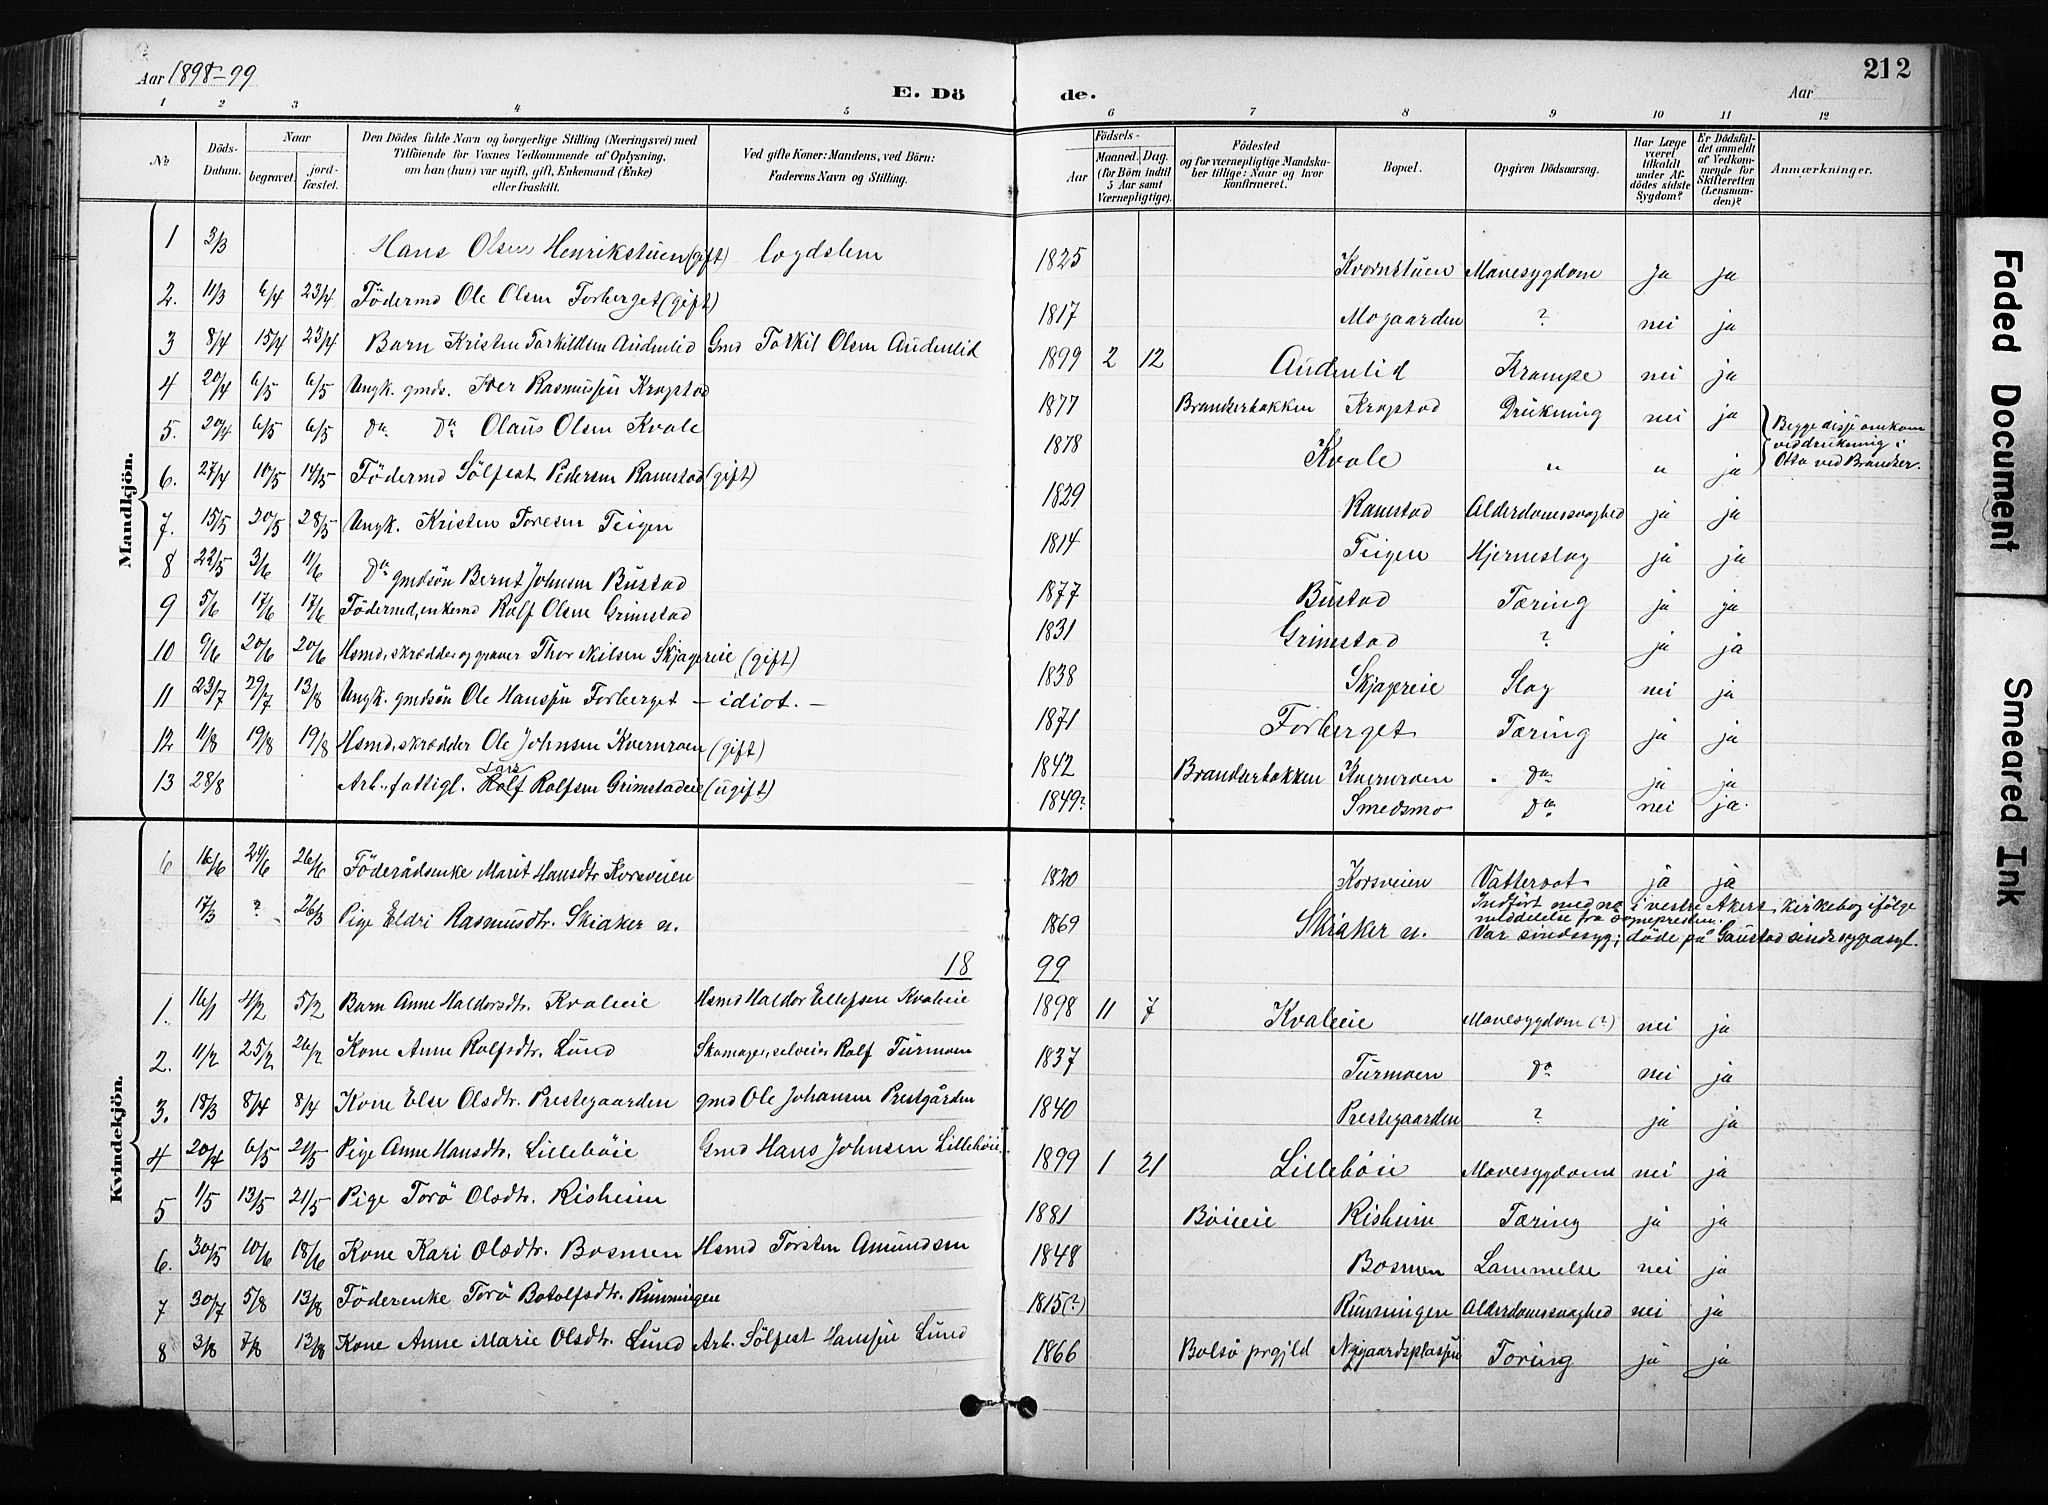 Aar 1898-99
E. Dö de.
Aar
212
1 2 3 4 5 6 7 8 9 10 11 12
No
Döds-Datum.
Naar
begravet.
jord-fæstet.
Den Dödes fulde Navn og borgerlige Stilling (Næringsvei) med
Tilföiende for Voxnes Vedkommende af Oplysning,
om han (hun) var ugift, gift, Enkemand (Enke)
eller fraskilt.
Ved gifte Koner: Mandens, ved Börn:
Faderens Navn og Stilling.
Födsels-
Aar
Maaned. Dag.
(for Börn indtil
5 Aar samt
Værnepligtige).
Födested
og for værnepligtige Mandska-
ber tillige: Naar og hvor
konfirmeret.
Bopæl.
Opgiven Dödsaarsag.
Har Læge
været
tilkaldt
under Af-
dödes sidste
Sygdom?
Er Dödsfal-
det anmeldt
af Vedkom-
mende for
Skifteretten
(Lensman-
den)?
Anmærkninger.
Mandkjön.
1 3/3 Hans Olsen Henrikstuen (gift) logdslem 1825 Kvernstuen Mavesygdom ja ja
2. 11/3 6/4 23/4 Födermd Ole Olsen Forberget (gift) 1817 Mogaarden ? nei ja
3 8/4 15/4 23/4 Barn Kristen Torkildsen Audenlid Gmd Torkil Olsen Audenlid 1899 2 12 Audenlid Krampe nei ja
4 20/4 6/5 6/5 Ungk. gmds. Iver Rasmussen Krogstad 1877 Brandserbakken Krogstad Drukning nei ja
5. 20/4 6/5 6/5 Do Do Olaus Olsen Kvale 1878 Kvale " " ja
Begge disse omkom
ved drukning i
Otta ved Brandser.
6. 27/4 10/5 14/5 Födermd Sölfest Pedersen Ramstad (gift) 1829 Ramstad Alderdomssvaghed ja ja
7. 15/5 20/5 28/5 Ungk. Kristen Toresen Teigen 1814 Teigen Hjerneslag ja ja
8 22/5 3/6 11/6 Do gmdsön Bernt Johnsen Bustad 1877 Bustad Tæring ja ja
9 5/6 17/6 17/6 Födermd, enkemd Rolf Olsen Grimstad 1831 Grimstad ? ja ja
10 9/6 20/6 20/6 Hsmd, skrædder og graver Thor Nilsen Skjagereie (gift) 1838 Skjagereie Slag nei ja
11 23/7 29/7 13/8 Ungk. gmdsön Ole Hanssen Forberget - idiot. - 1871 Forberget Tæring ja ja
12 11/8 19/8 19/8 Hsmd, skrædder Ole Johnsen Kvernroen (gift) 1842 Brandserbakken Kvernroen Do ja ja
Lars
13 28/8 Arb., fattigl. Rolf Rolfsen Grimstadeie (ugift) 1849? Smedsmo Do nei ja.
Kvindekjön.
6 16/6 24/6 26/6 Föderådsenke Marit Hansdtr Korsveien 1820 Korsveien Vattersot ja ja
17/3 ? 26/3 Pige Eldri Rasmusdtr. Skiaker n. 1869 Skiaker n.
Indfört med no i vestre Akers kirkebog ifölge
meddelelse fra sognepresten.
Var sindssyg; döde på Gaustad sindssygeasyl.
18 99
1. 16/1 4/2 5/2 Barn Anne Haldorsdtr. Kvaleeie Hsmd Haldor Ellefsen Kvaleeie 1898 11 7 Kvaleeie Mavesygdom (?) nei ja
2. 11/2 25/2 26/2 Kone Anne Rolfsdtr. Lund Skomager, selveier Rolf Turmoen 1837 Turmoen Do nei ja
3. 18/3 8/4 8/4 Kone Else Olsdtr. Prestegaarden gmd Ole Johansen Prestgården 1840 Prestegaarden ? ja ja
4 20/4 6/5 21/5 Pige Anne Hansdtr. Lilleböie Gmd Hans Johnsen Lilleböie 1899 1 21 Lilleböie Mavesygdom nei ja
5 1/5 13/5 21/5 Pige Torö Olsdtr. Risheim 1881 Böieeie Risheim Tæring ja ja
6. 30/5 10/6 18/6 Kone Kari Olsdtr. Bosmoen Hsmd Torsten Amundsen 1848 Bosmoen Lammelse nei ja
7 30/7 5/8 13/8 Föderenke Torö Botolfsdtr. Runningen 1815(?) Runningen Alderdomssvaghed nei ja
8 3/8 7/8 13/8 Kone Anne Marie Olsdtr. Lund Arb. Sölfest Hanssen Lund 1866 Bolsö prgjld Nygaardsplassen Tæring ja ja
Faded Document
Smeared Ink